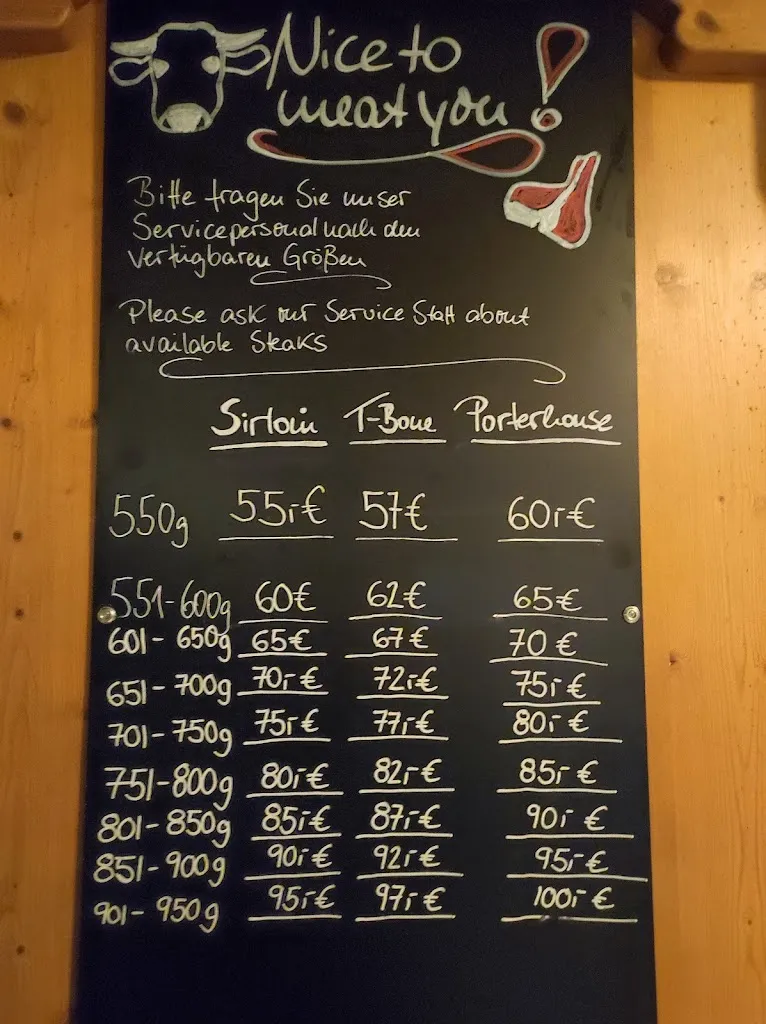 Nice to
meat you!
Bitte fragen Sie unser
Servicepersonal nach den
verfügbaren Größen
Please ask our Service Staff about
available Steaks
Sirloin T-Bone Porterhouse
550g 55,-€ 57€ 60,-€
551-600g 60€ 62€ 65€
601-650g 65€ 67€ 70€
651-700g 70,-€ 72,-€ 75,-€
701-750g 75,-€ 77,-€ 80,-€
751-800g 80,-€ 82,-€ 85,-€
801-850g 85,-€ 87,-€ 90,-€
851-900g 90,-€ 92,-€ 95,-€
901-950g 95,-€ 97,-€ 100,-€